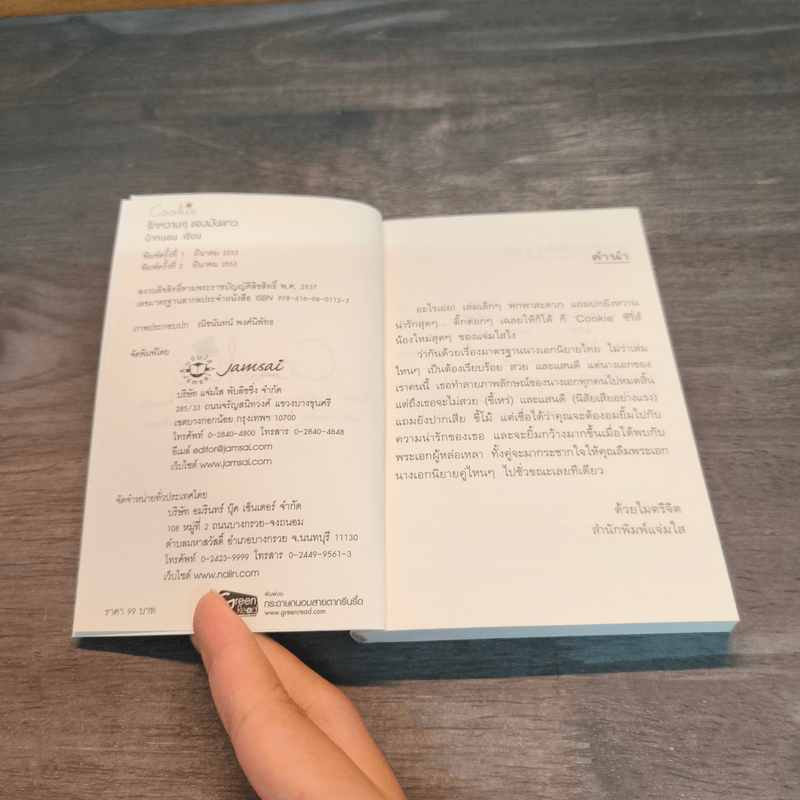 Cookie
รักหวานๆ ของมันแกว
ป้าหนอน เขียน
พิมพ์ครั้งที่ 1 มีนาคม 2553
พิมพ์ครั้งที่ 2 มีนาคม 2553
สงวนลิขสิทธิ์ตามพระราชบัญญัติลิขสิทธิ์ พ.ศ. 2537
เลขมาตรฐานสากลประจำหนังสือ ISBN 978-616-06-0112-7
ภาพประกอบปก ณิชนันทน์ พงศ์นิพัทธ
จัดพิมพ์โดย
Jamsai
บริษัท แจ่มใส พับลิชชิ่ง จำกัด
285/33 ถนนจรัญสนิทวงศ์ แขวงบางขุนศรี
เขตบางกอกน้อย กรุงเทพฯ 10700
โทรศัพท์ 0-2840-4800 โทรสาร 0-2840-4848
อีเมล์ editor@jamsai.com
เว็บไซต์ www.jamsai.com
จัดจำหน่ายทั่วประเทศโดย
บริษัท อมรินทร์ บุ๊ค เซ็นเตอร์ จำกัด
108 หมู่ที่ 2 ถนนบางกรวย-จงถนอม
ตำบลมหาสวัสดิ์ อำเภอบางกรวย จ.นนทบุรี 11130
โทรศัพท์ 0-2423-9999 โทรสาร 0-2449-9561-3
เว็บไซต์ www.naiin.com
ราคา 99 บาท
Green Read
พิมพ์บน
กระดาษถนอมสายตากรีนรี้ด
www.greenread.com
คำนำ
อะไรเอ่ย! เล่มเล็กๆ พกพาสะดวก แถมปกยังหวาน
น่ารักสุดๆ... ติ๊กต่อกๆ เฉลยให้ก็ได้ ก็ 'Cookie' ซีรี่ส์
น้องใหม่สุดๆ ของแจ่มใสไง
ว่ากันด้วยเรื่องมาตรฐานนางเอกนิยายไทย ไม่ว่าเล่ม
ไหนๆ ก็เป็นต้องเรียบร้อย สวย และแสนดี แต่นางเอกของ
เราคนนี้ เธอทำลายภาพลักษณ์ของนางเอกทุกคนไปหมดสิ้น
แต่ถึงเธอจะไม่สวย (ขี้เหร่) และแสนดี (นิสัยเสียอย่างแรง)
แถมยังปากเสีย ขี้โม้ แต่เชื่อได้ว่าคุณจะต้องอมยิ้มไปกับ
ความน่ารักของเธอ และจะยิ้มกว้างมากขึ้นเมื่อได้พบกับ
พระเอกผู้หล่อเหลา ทั้งคู่จะมากระชากใจให้คุณลืมพระเอก
นางเอกนิยายคู่ไหนๆ ไปชั่วขณะเลยทีเดียว
ด้วยไมตรีจิต
สำนักพิมพ์แจ่มใส